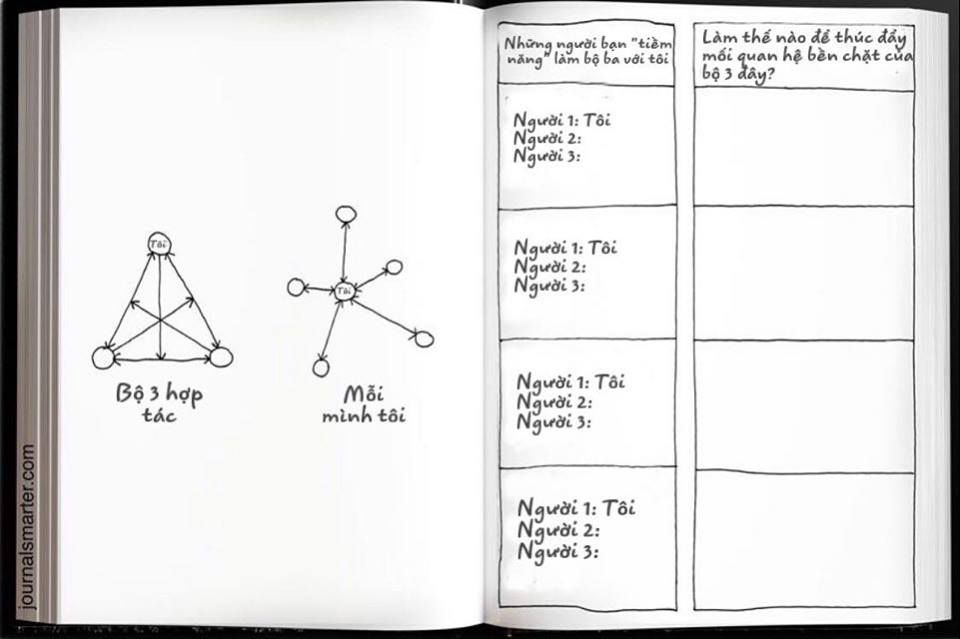 Tôi
Tôi
Bộ 3 hợp
tác
Mỗi
mình tôi
journalsmarter.com
Những người bạn "tiềm
năng" làm bộ ba với tôi
Người 1: Tôi
Người 2:
Người 3:
Người 1: Tôi
Người 2:
Người 3:
Người 1: Tôi
Người 2:
Người 3:
Người 1: Tôi
Người 2:
Người 3:
Làm thế nào để thúc đẩy
mối quan hệ bền chặt của
bộ 3 đây?